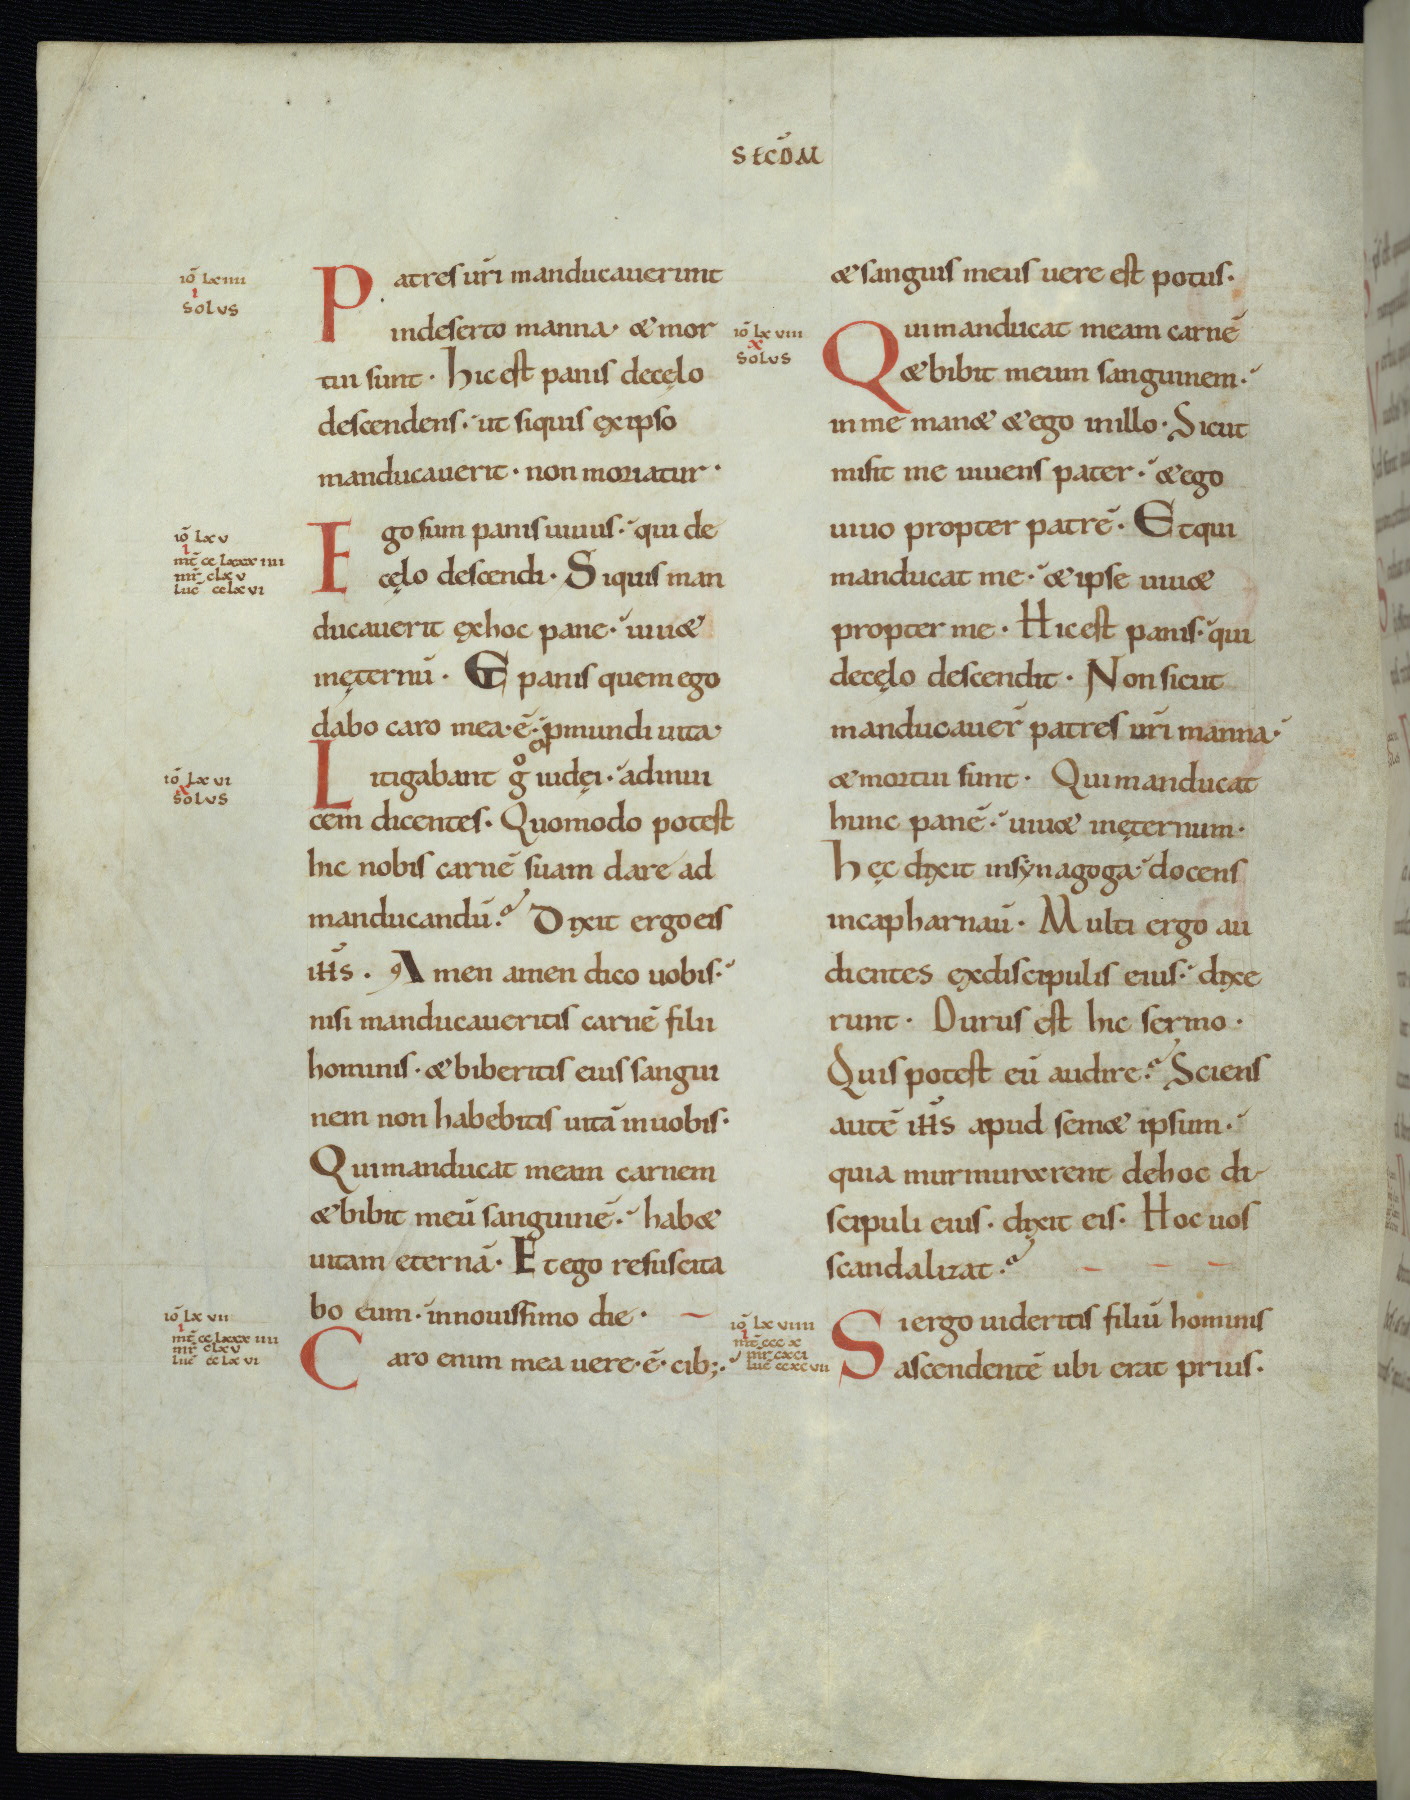 SECD̄M
iō lxiiii
i
solus
Patres ur̄i manducauerunt
indeserto manna· & mor
tui sunt· hic est panis decęlo
descendens·ut siquis exipso
manducauerit· non moriatur·
iō lxv
i
mt̄ cclxxxiiii
mr̄ clxv
luc̄ cclxvi
Ego sum panis uiuus· qui de
cęlo descendi· Siquis man
ducauerit exhoc pane· uiu&
inęternū· Et panis quem ego
dabo caro mea·ē·ꝓmundi uita
iō lxvi
x
solus
Litigabant gͦ iudęi· adinui
cem dicentes· Quomodo potest
hic nobis carnē suam dare ad
manducandū? Dixit ergo eis
iħs̄. Amen amen dico uobis·
nisi manducaueritis carnē filii
hominis· & biberitis eius sangui
nem non habebitis uitā inuobis·
Qui manducat meam carnem
& bibit meū sanguinē· hab&
uitam eternā· Et ego resuscita
bo eum· innouissimo die·
iō lxvii
i
mt̄ cclxxxiiii
mr̄ clxv
luc̄ cclxvi
Caro enim mea uere·ē· cib;·
& sanguis meus uere est potus·
iō lxviii
x
solus
Qui manducat meam carnē
& bibit meum sanguinem·
in me man& & ego inillo· Sicut
misit me uiuens pater· & ego
uiuo propter patrē· Et qui
manducat me· & ipse uiu&
propter me· Hic est panis· qui
decęlo descendit· Non sicut
manducauer̄ patres ur̄i manna·
& mortui sunt· Qui manducat
hunc panē· uiu& inęternum·
Hęc dixit insynagoga docens
incapharnaū· Multi ergo au
dientes exdiscipulis eius· dixe
runt· Durus est hic sermo·
Quis potest eū audire? Sciens
autē iħs̄ apud sem& ipsum·
quia murmurarent dehoc di-
scipuli eius· dixit eis· Hoc uos
scandalizat?
iō lxviiii
i
mt̄ cccx
mr̄ cxci
luc̄ ccxcvii
Si ergo uideritis filiū hominis
ascendentē ubi erat prius·